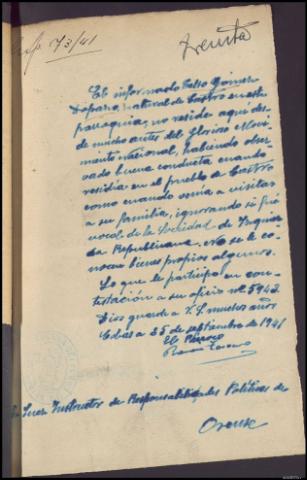 73/41
Treinta
El informado Celso Gómez
natural de Castro en esta
parroquia, no reside aquí des-
de mucho antes del Glorioso Movi-
miento nacional, habiendo obser-
vado buena conducta cuando
residía en el pueblo de Castro
como cuando venía a visitar
a su familia, ignorando si fué
vocal de la Sociedad de Izquier
da Republicana. No se le co-
nocen bienes propios algunos.
Lo que le participo en con-
testación a su oficio nº 5942.
Dios guarde a V. S. muchos años
a 25 de septiembre de 1941
El Párroco
Juez Instructor de Responsabilidades Políticas de
Orense